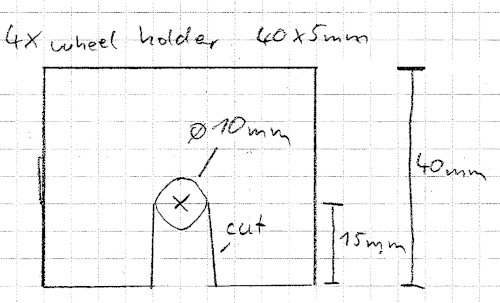 4x wheel holder 40x5mm
ø10mm
40mm
cut
15mm